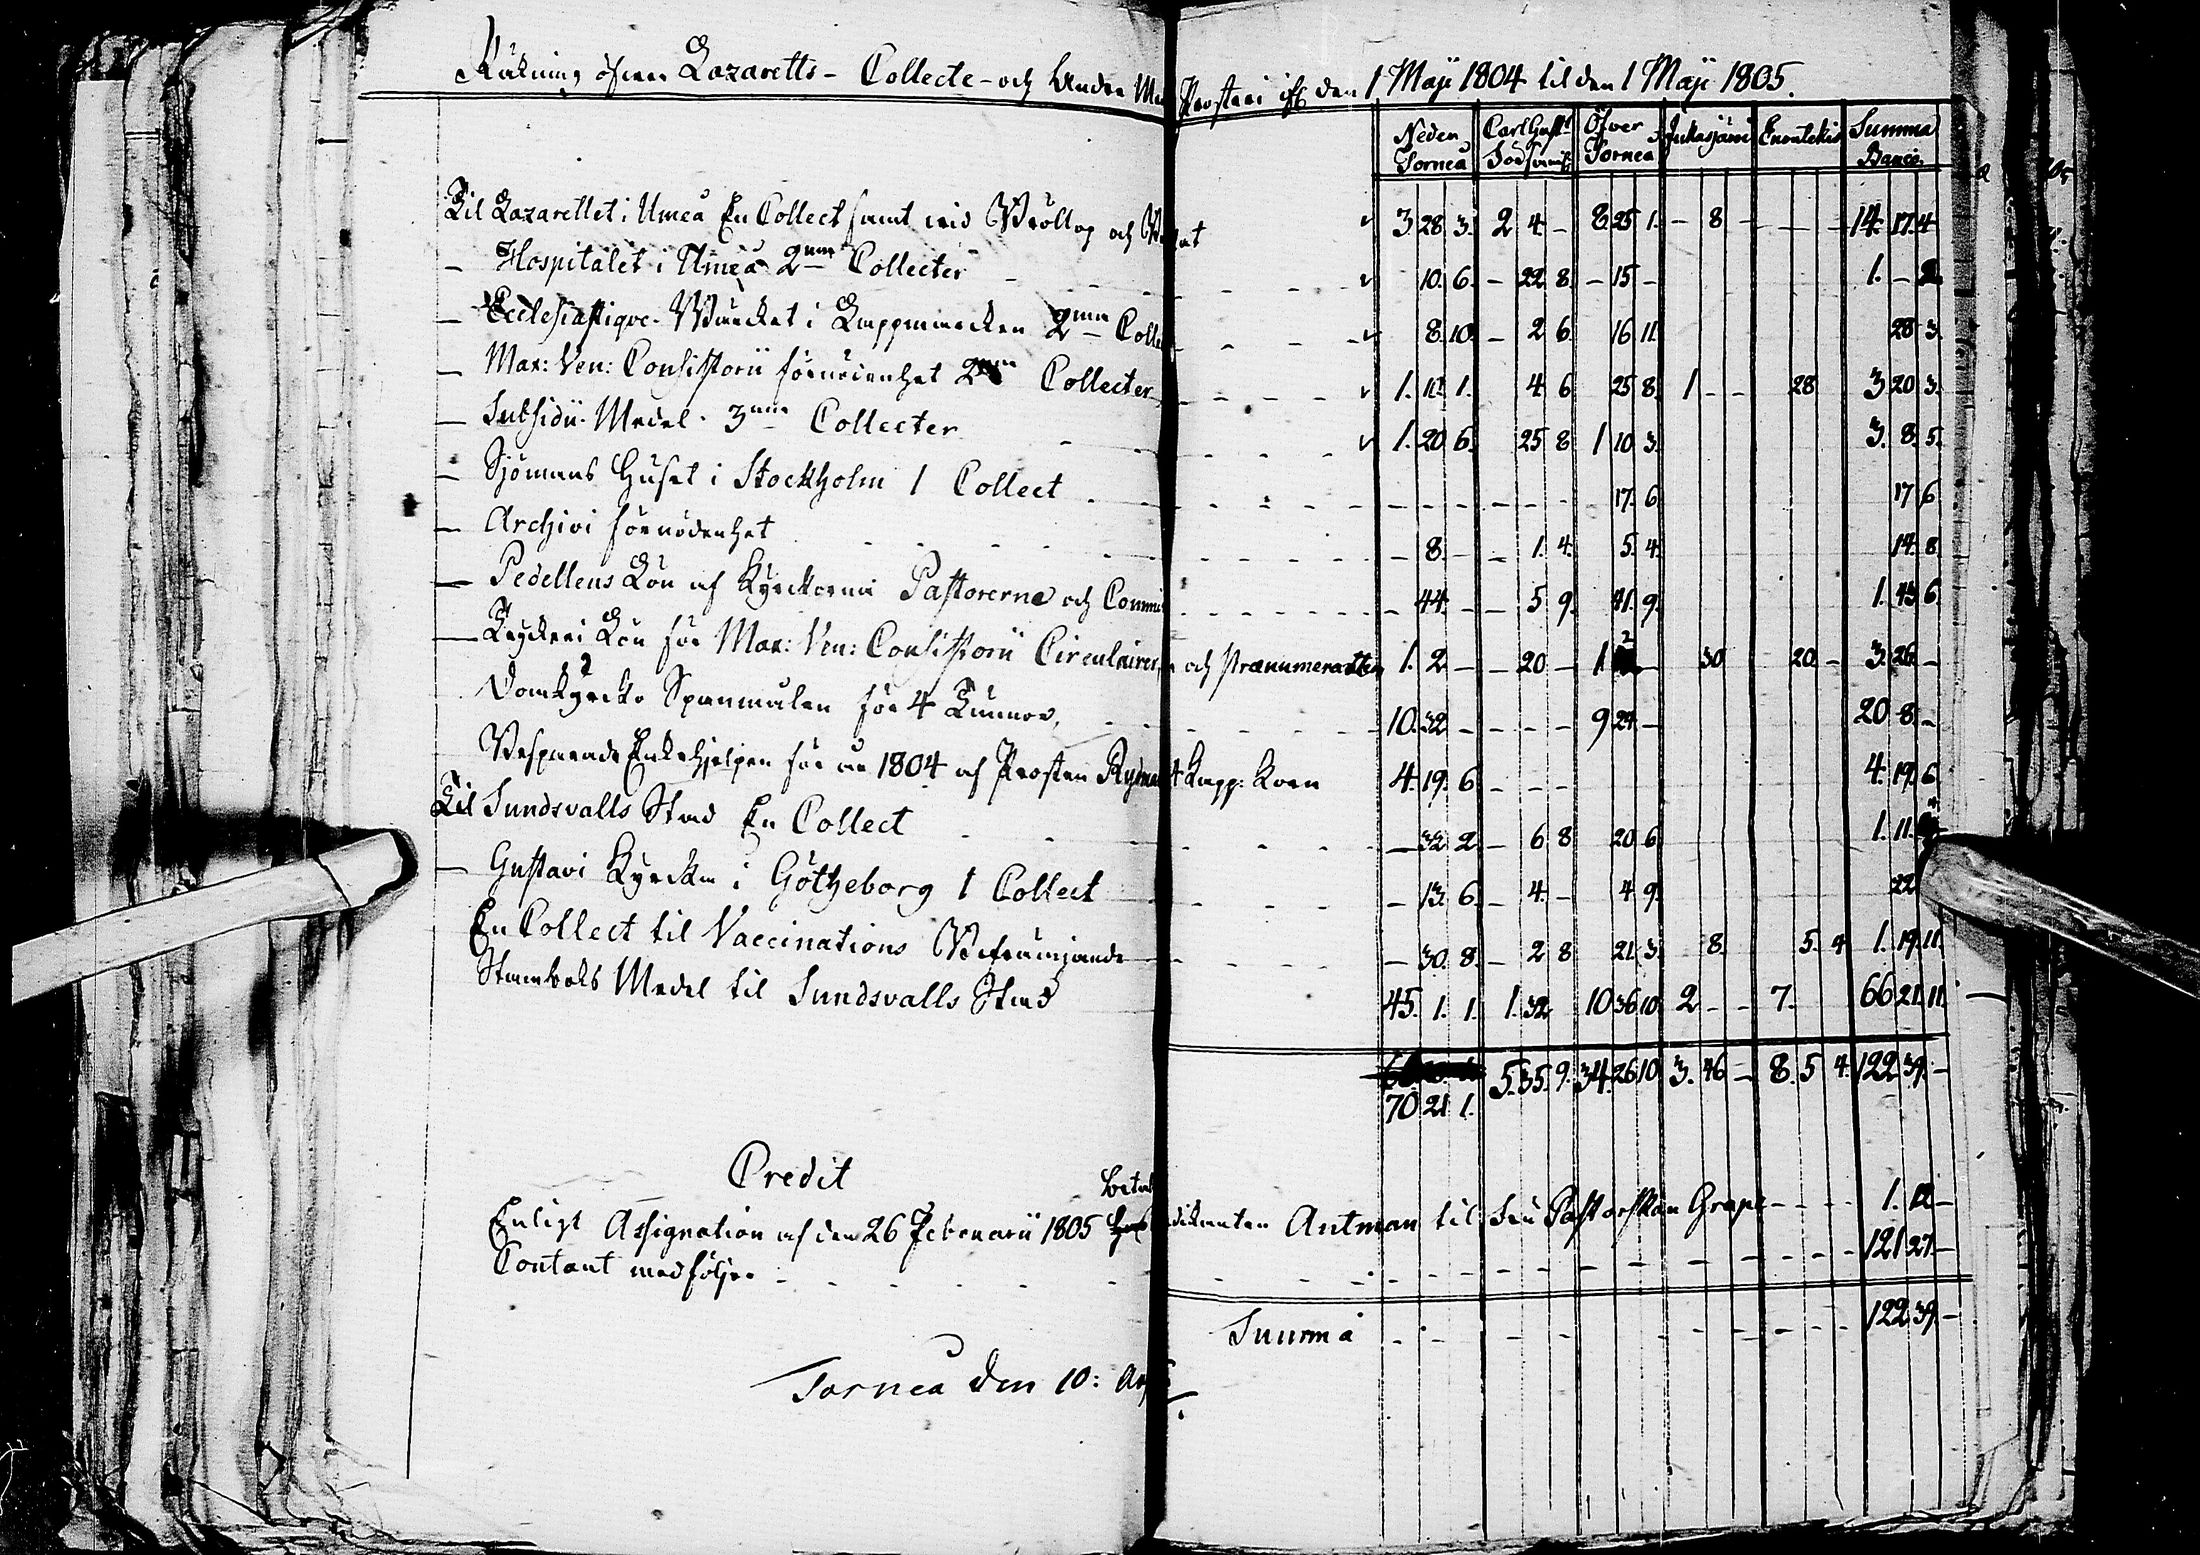 Räkning öfver Lazaretts- Collecte- och Andra Me Prosteri ifr den 1 Maji 1804 til den 1 Maji 1805.
Neden Torneå | Carl Gust: Sods | Öfver Torneå | Jukasjärvi | Enontekis | Summa Banco
Til Lazarettet i Umeå En Collect samt vid Bröllop och B ✓ 3 28 3. 2 4 - 8 25 1. - 8 - - - - 14. 17. 4
- Hospitalet i Umeå 2ne Collecter ✓ 10. 6. - 22 8. - 15 - 1. -
- Ecclesiastique-Wärcket i Lappmarcken 2ne Colle ✓ 8. 10. - 2 6. 16 11. 28 3.
- Max: Ven: Consistorii förnödenhet 2ne Collecter ✓ 1. 1. 4 6 25 8. 1 - - 28 3 20 3.
- Subsidii-Medel. 3ne Collecter ✓ 1. 20 6. 25 8 1 10 3. 3. 8. 5.
- Sjömans Huset i Stockholm 1 Collect - - - - - - 17. 6 17 6
- Archivi förnödenhet - 8. - - 1. 4. 5. 4. 14. 8.
- Pedellens Lön af Kyrckorna Pastorerne och Commi - 44. - - 5 9. 41. 9. 1. 43 6.
- Tryckeri Lön för Max: Ven: Consistorii Circulairer, och Prænumerationen 1. 2 - - 20 - 1. 2 - 30 20. - 3. 26 -
Domkyrcko Spanmålen för 4 Tunnor, 10. 32 - - - - 9 24 - 20 8. -
Besparade Enkehjelpen för år 1804 af Prosten Kapp: Korn 4. 19. 6 - - - 4. 19. 6
Til Sundsvalls Stad En Collect - 32 2 - 6 8 20 6. 1. 11.
- Gustavi Kyrcka i Götheborg 1 Collect - 13. 6 - 4. - 4 9. 22
En Collect til Vaccinations Befrämjande - 30. 8. - 2 8 21. 3. 8. 5. 4 1. 19. 11.
Stamboks Medel til Sundsvalls Stad 45. 1. 1. 1. 32 10 36 10. 2 - - 7. 66 21. 11.
70 21 1. 5. 35. 9. 34. 26 10 3. 46 - 8. 5 4. 122 39. -
Credit
Enligt Assignation af den 26 Februarii 1805 Adjunten Antman til Fru Pastorskan Grape - - - - 1. 12 -
Contant medföljer - - - - 121 27 -
Summa - - - - 122 39. -
Torneå den 10: Ap